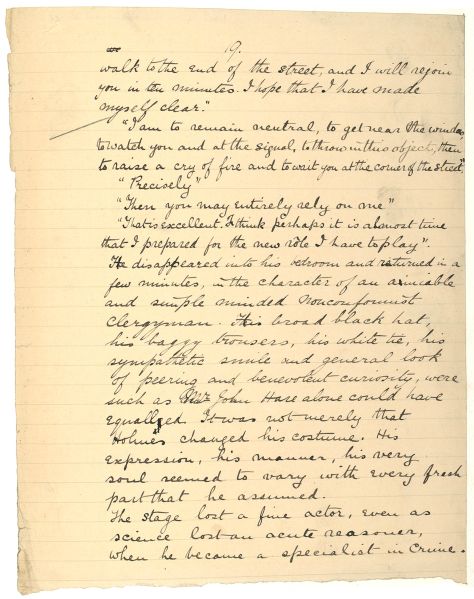 19.
walk to the end of the street, and I will rejoin
you in ten minutes. I hope that I have made
myself clear."
"I am to remain neutral, to get near the window,
to watch you and at the signal, to throw in this object, then
to raise a cry of fire and to wait you at the corner of the street."
"Precisely"
"Then you may entirely rely on me"
"That is excellent. I think perhaps it is almost time
that I prepared for the new rôle I have to play".
He disappeared into his bedroom and returned in a
few minutes, in the character of an amiable
and simple minded Nonconformist
clergyman. His broad black hat,
his baggy trousers, his white tie, his
sympathetic smile and general look
of peering and benevolent curiosity, were
such as Mr John Hare alone could have
equalled. It was not merely that
Holmes changed his costume. His
expression, his manner, his very
soul seemed to vary with every fresh
part that he assumed.
The stage lost a fine actor, even as
science lost an acute reasoner,
when he became a specialist in crime.